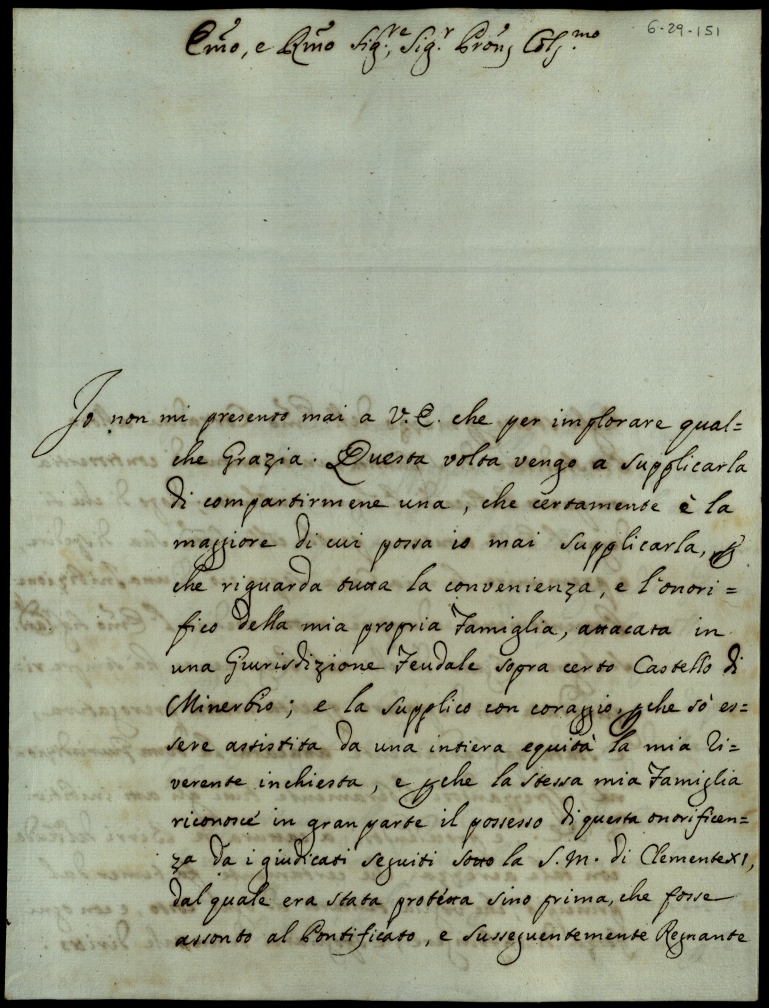 Em̃o, e Rm̃o Sig.re, Sig.r Pron̄, Col.mo
6-29-151
Io non mi presento mai a V. E. che per implorare qual=
che Grazia. Questa volta vengo a supplicarla
di compartirmene una, che certamente è la
maggiore di cui possa io mai supplicarla,
che riguarda tutta la convenienza, e l'onori=
fico della mia propria Famiglia, attacata in
una Giurisdizione Feudale sopra certo Castello di
Minerbio; e la supplico con coraggio, ꝑche sò es=
sere assistita da una intiera equità la mia ri=
verente inchiesta, e ꝑche la stessa mia Famiglia
riconosce in gran parte il possesso di questa onorificen=
za da i giudicati seguiti sotto la S. M. di Clemente XI,
dal quale era stata protetta sino prima, che fosse
assonto al Pontificato, e susseguentemente Regnante